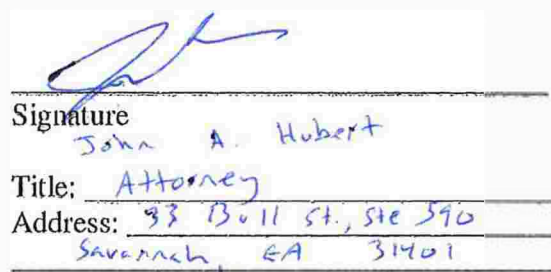 Signature
John A. Hubert
Title: Attorney
Address: 33 Bull St., Ste 590
Savannah, GA 31401